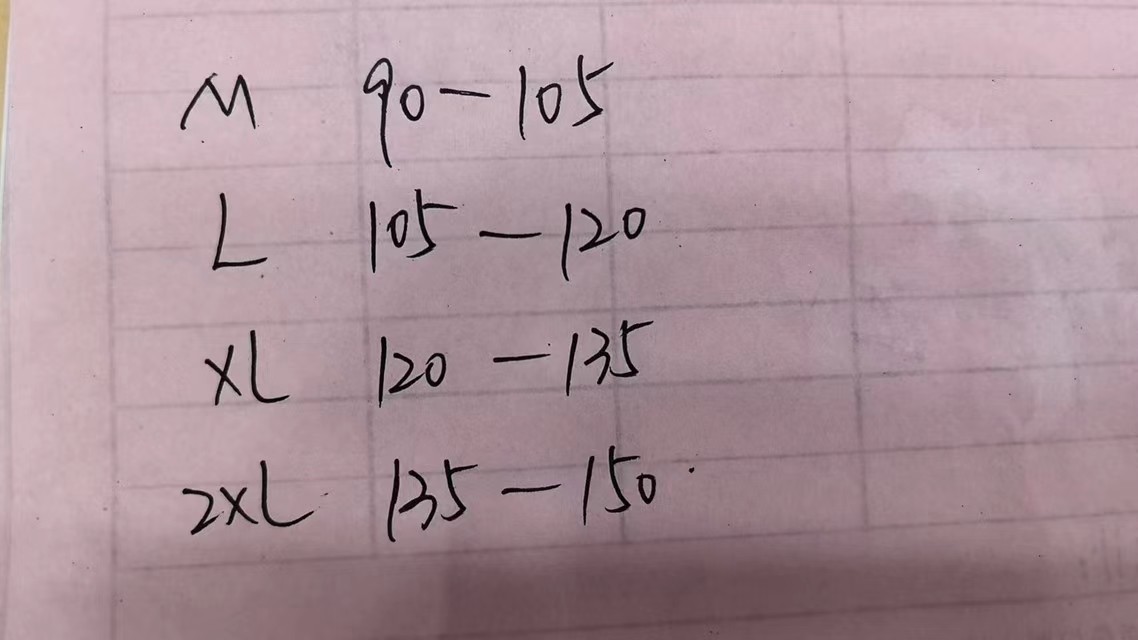 M 90-105
L 105-120
XL 120-135
2XL 135-150